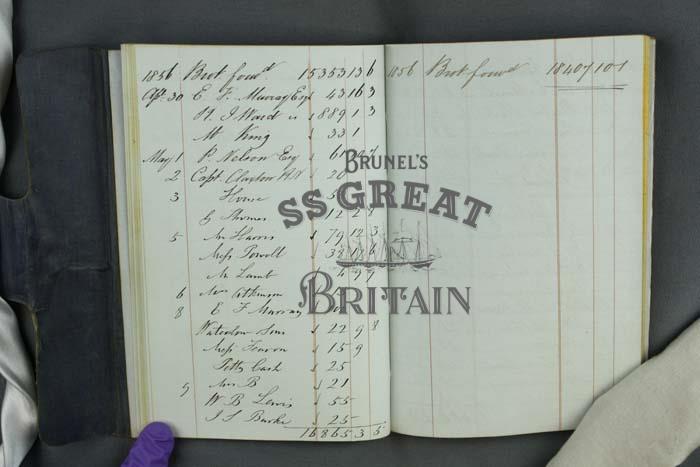 1856 Brot fowd 15353 13 6
Apl. 30 E. F. Murray Esq 43 16 3
H. J. Ward 889 1 3
Mr King 33 1
May 1 P. Nelson Esq
2 Capt. Claxton RN 20
3 Howe
G Thomas 12 2
5 Mr Harris 79 12 3
Mess Powell
Mr Lamb
6 Mrs Atkinson
8 E F Murray
Waterlow Sons 22 9 8
Mess 15 9
Petty Cash 25
9 Mrs B 21
W B Lewis 55
J S Burke 25
16865 3 5
1856 Brot fowd 18407 10 1
BRUNEL'S
SS GREAT
BRITAIN